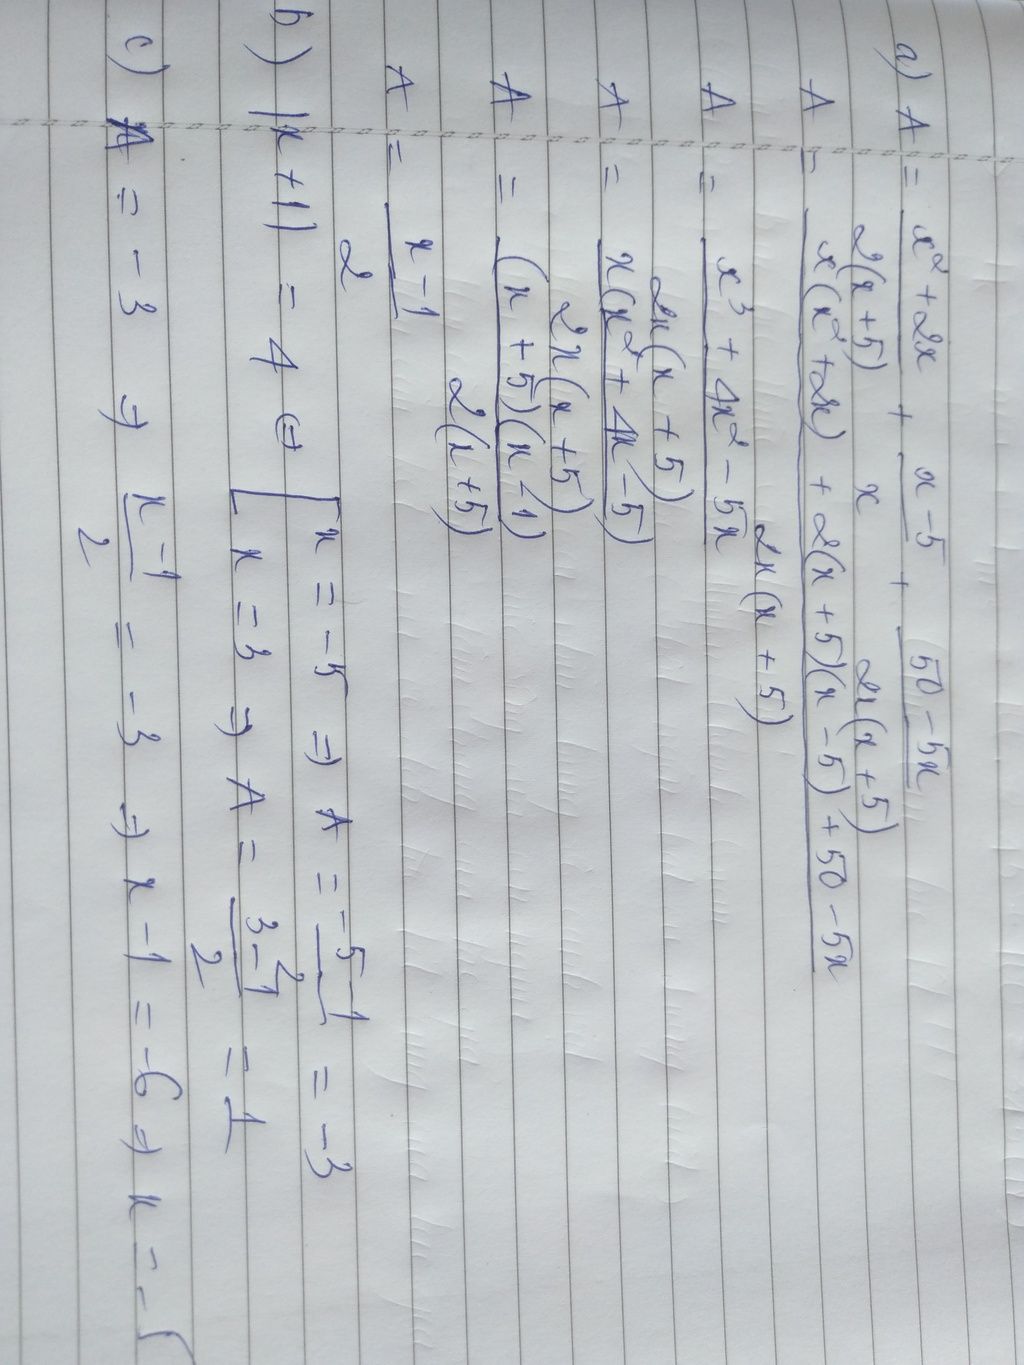 a) A = x²+2x / 2(x+5) + x-5 / x + 50-5x / 2x(x+5)
A = x(x²+2x) + 2(x+5)(x-5) + 50-5x / 2x(x+5)
A = x³ + 4x² - 5x / 2x(x+5)
A = x(x² + 4x - 5) / 2x(x+5)
A = (x+5)(x-1) / 2(x+5)
A = x-1 / 2
b) |x+1| = 4 ⇔ [ x = -5 ⇒ A = -5-1 / 2 = -3
x = 3 ⇒ A = 3-1 / 2 = 1
c) A = -3 ⇒ x-1 / 2 = -3 ⇒ x-1 = -6 ⇒ x = -5